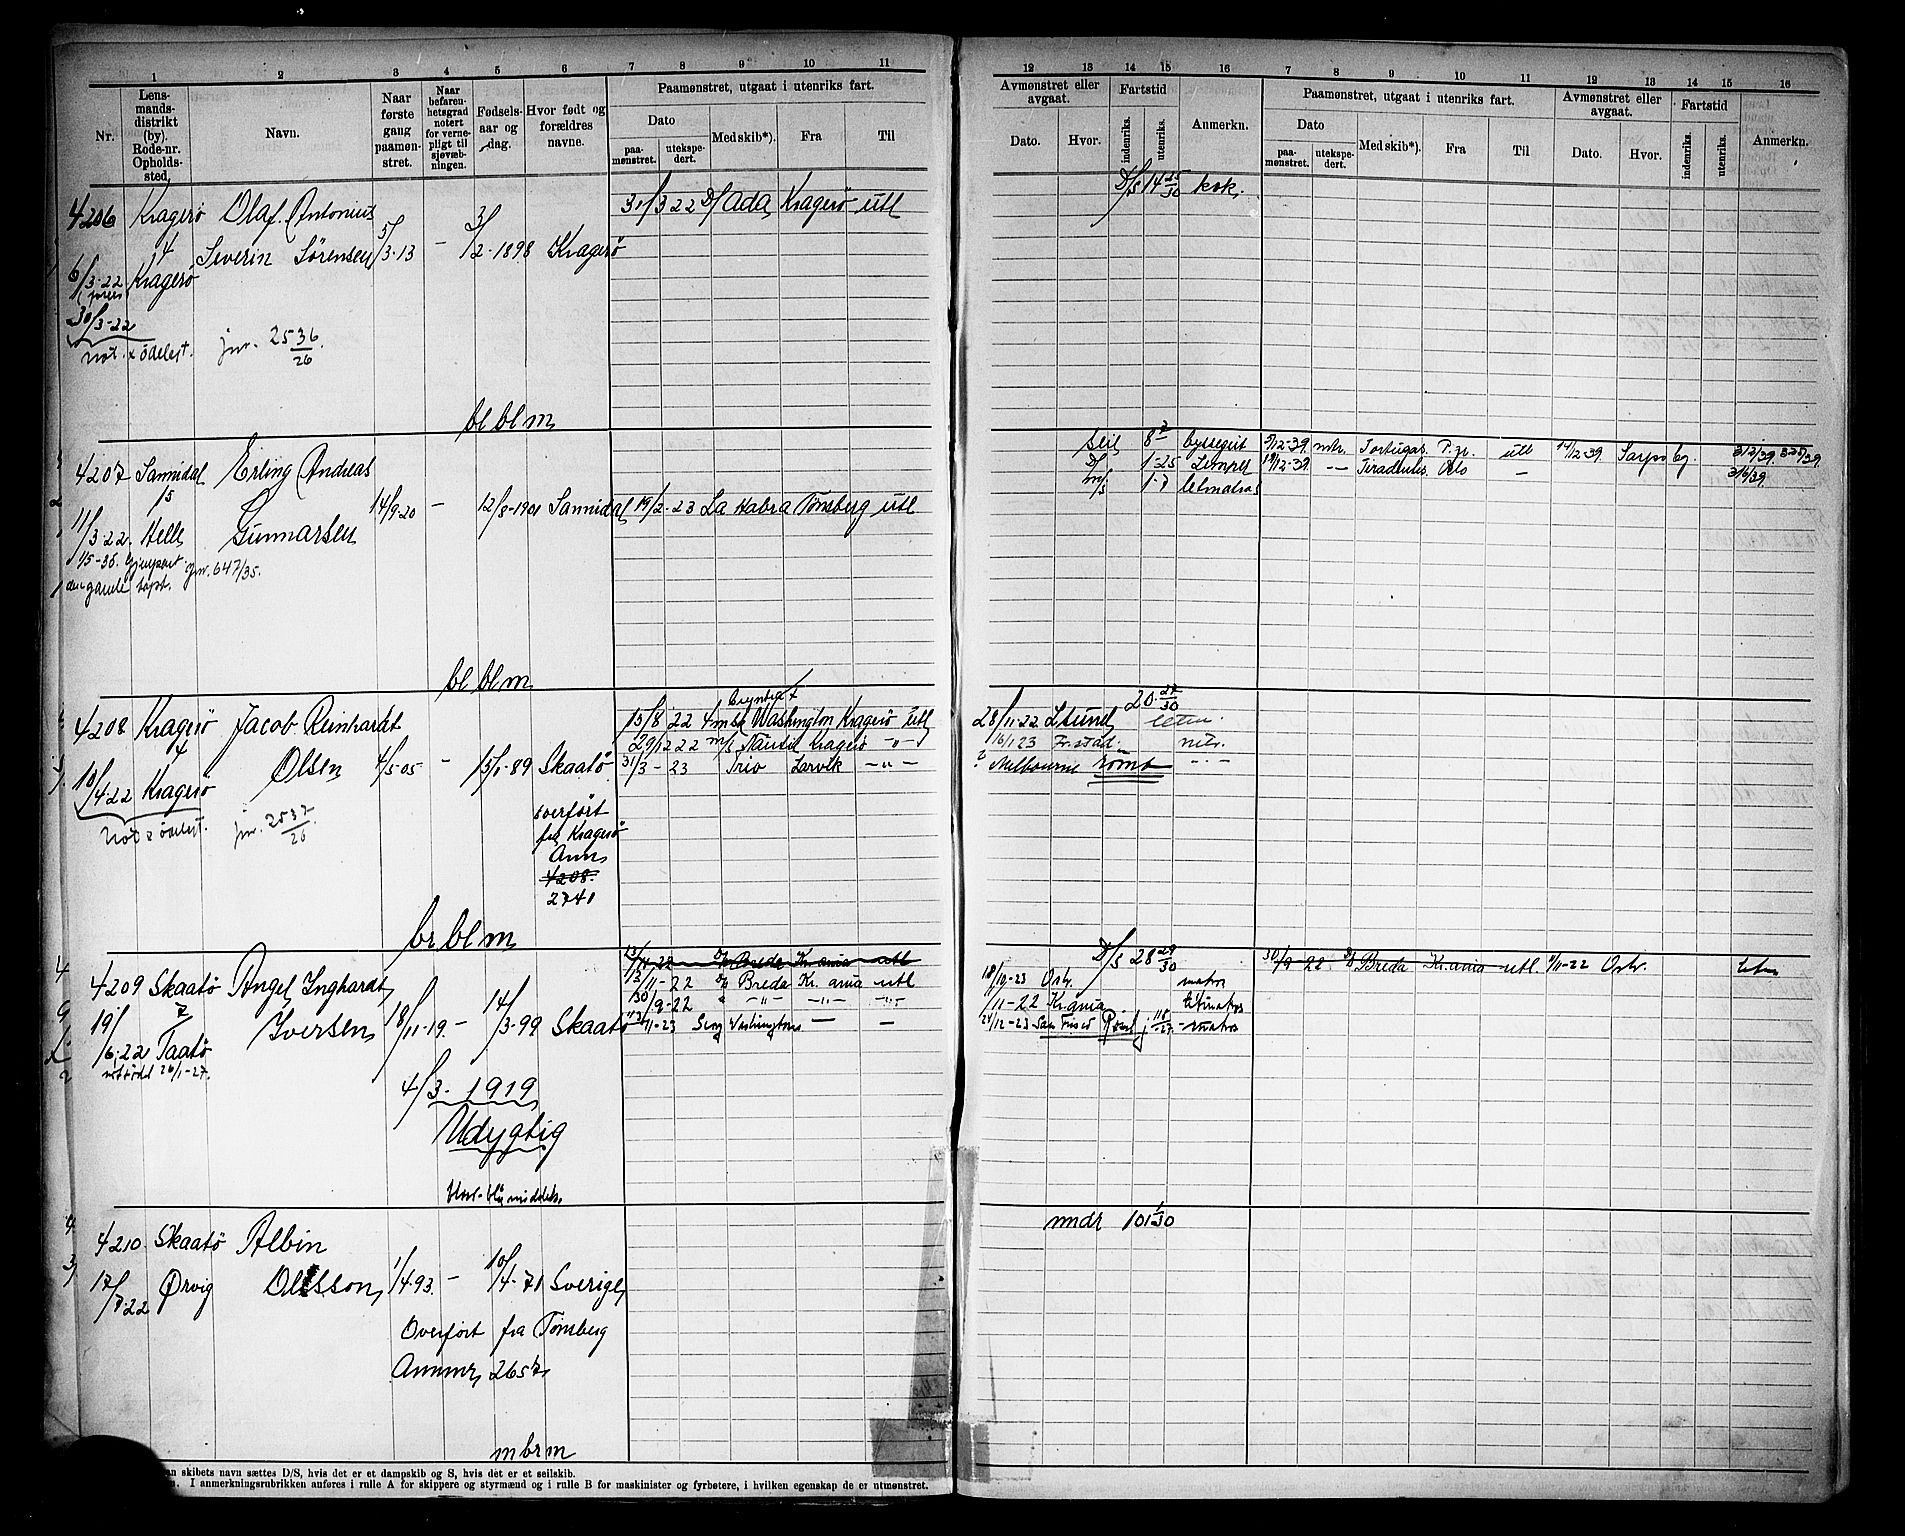 1 2 3 4 5 6 7 8 9 10 11
Nr. Lensmandsdistrikt (by). Rode-nr. Opholdssted. Navn. Naar første gang paamønstret. Naar befarenhetsgrad notert for vernepligt til sjøvæbningen. Fødselsaar og dag. Hvor født og forældres navne.
Paamønstret, utgaat i utenriks fart.
Dato Med skib*). Fra Til
paamønstret. utekspedert.
4206 Kragerø Olaf Antonius 31/3 22 D/ Ada Kragerø utl
4 Severin Sørensen 5/3·13 – 3/2·1898 Kragerø
6/3·22 Kragerø
30/3-22
not. ødelagt. jnr. 2536/26.
bl bl m
4207 Sannidal Erling Andreas
5
11/3·22. Helle Gunnarsen 14/9·20 – 12/8-1901 Sannidal 19/2·23 La Habra Tønsberg utl
1/5-35. jnr. 647/35.
gamle tapt.
bl bl m
4208 Kragerø Jacob Reinhardt 15/8 22 4m Washington Kragerø utl
4 29/12 22 m/s Kragerø -"-
10/4·22 Kragerø Olsen 4/5·05 – 15/1·89 Skaatø 31/3 - 23 Trio Larvik -"-
Not ødelagt. jnr. 2537/26.
overført
fra Kragerø
Ann
4208.
2740
br bl m
Breda Kr.ania utl
4209 Skaatø Angel Inghardt 13/11-22 Breda Kr.ania utl
2 30/9-22 " -"- -"- -"-
19/6·22 Taatø Iversen 18/11·19. – 14/3·99 Skaatø 11-23 Washington — —
26/1-27.
4/3· 1919
Udygtig
4210 Skaatø Albin
17/7·22 Ørvig Olsson 1/4·93. – 10/4·71 Sverige
Overført fra Tønsberg
Annmr 2657
m br m
skibets navn sættes D/S, hvis det er et dampskib og S, hvis det er et seilskib.
I anmerkningsrubrikken anføres i rulle A for skippere og styrmænd og i rulle B for maskinister og fyrbøtere, i hvilken egenskap de er utmønstret.
12 13 14 15 16 7 8 9 10 11 12 13 14 15 16
Avmønstret eller avgaat. Fartstid Anmerkn. Paamønstret, utgaat i utenriks fart. Avmønstret eller avgaat. Fartstid Anmerkn.
Dato. Hvor. indenriks. utenriks. Dato Med skib*). Fra Til Dato. Hvor. indenriks. utenriks.
paamønstret. utekspedert.
D/s 14 25/30 kok.
seil 8 byssegut 5/12-39. mtr. Tortugas P.gr. utl 14/12-39. Sarpsbg.
D/ 1-25 19/12-39. -- Oslo —
m/s 1-7 letmatros 31/6/39.
20 27/30
28/11-22 Lsund
16/1 23 Fr.stad
Melbourne rømt -"-
D/s 28 29/30 30/9-22 D/ Breda Kr.ania utl. 9/11-22
18/10-23 matros
/11-22 Kr.ania
24/12-23 matros
mdr 101 1/30